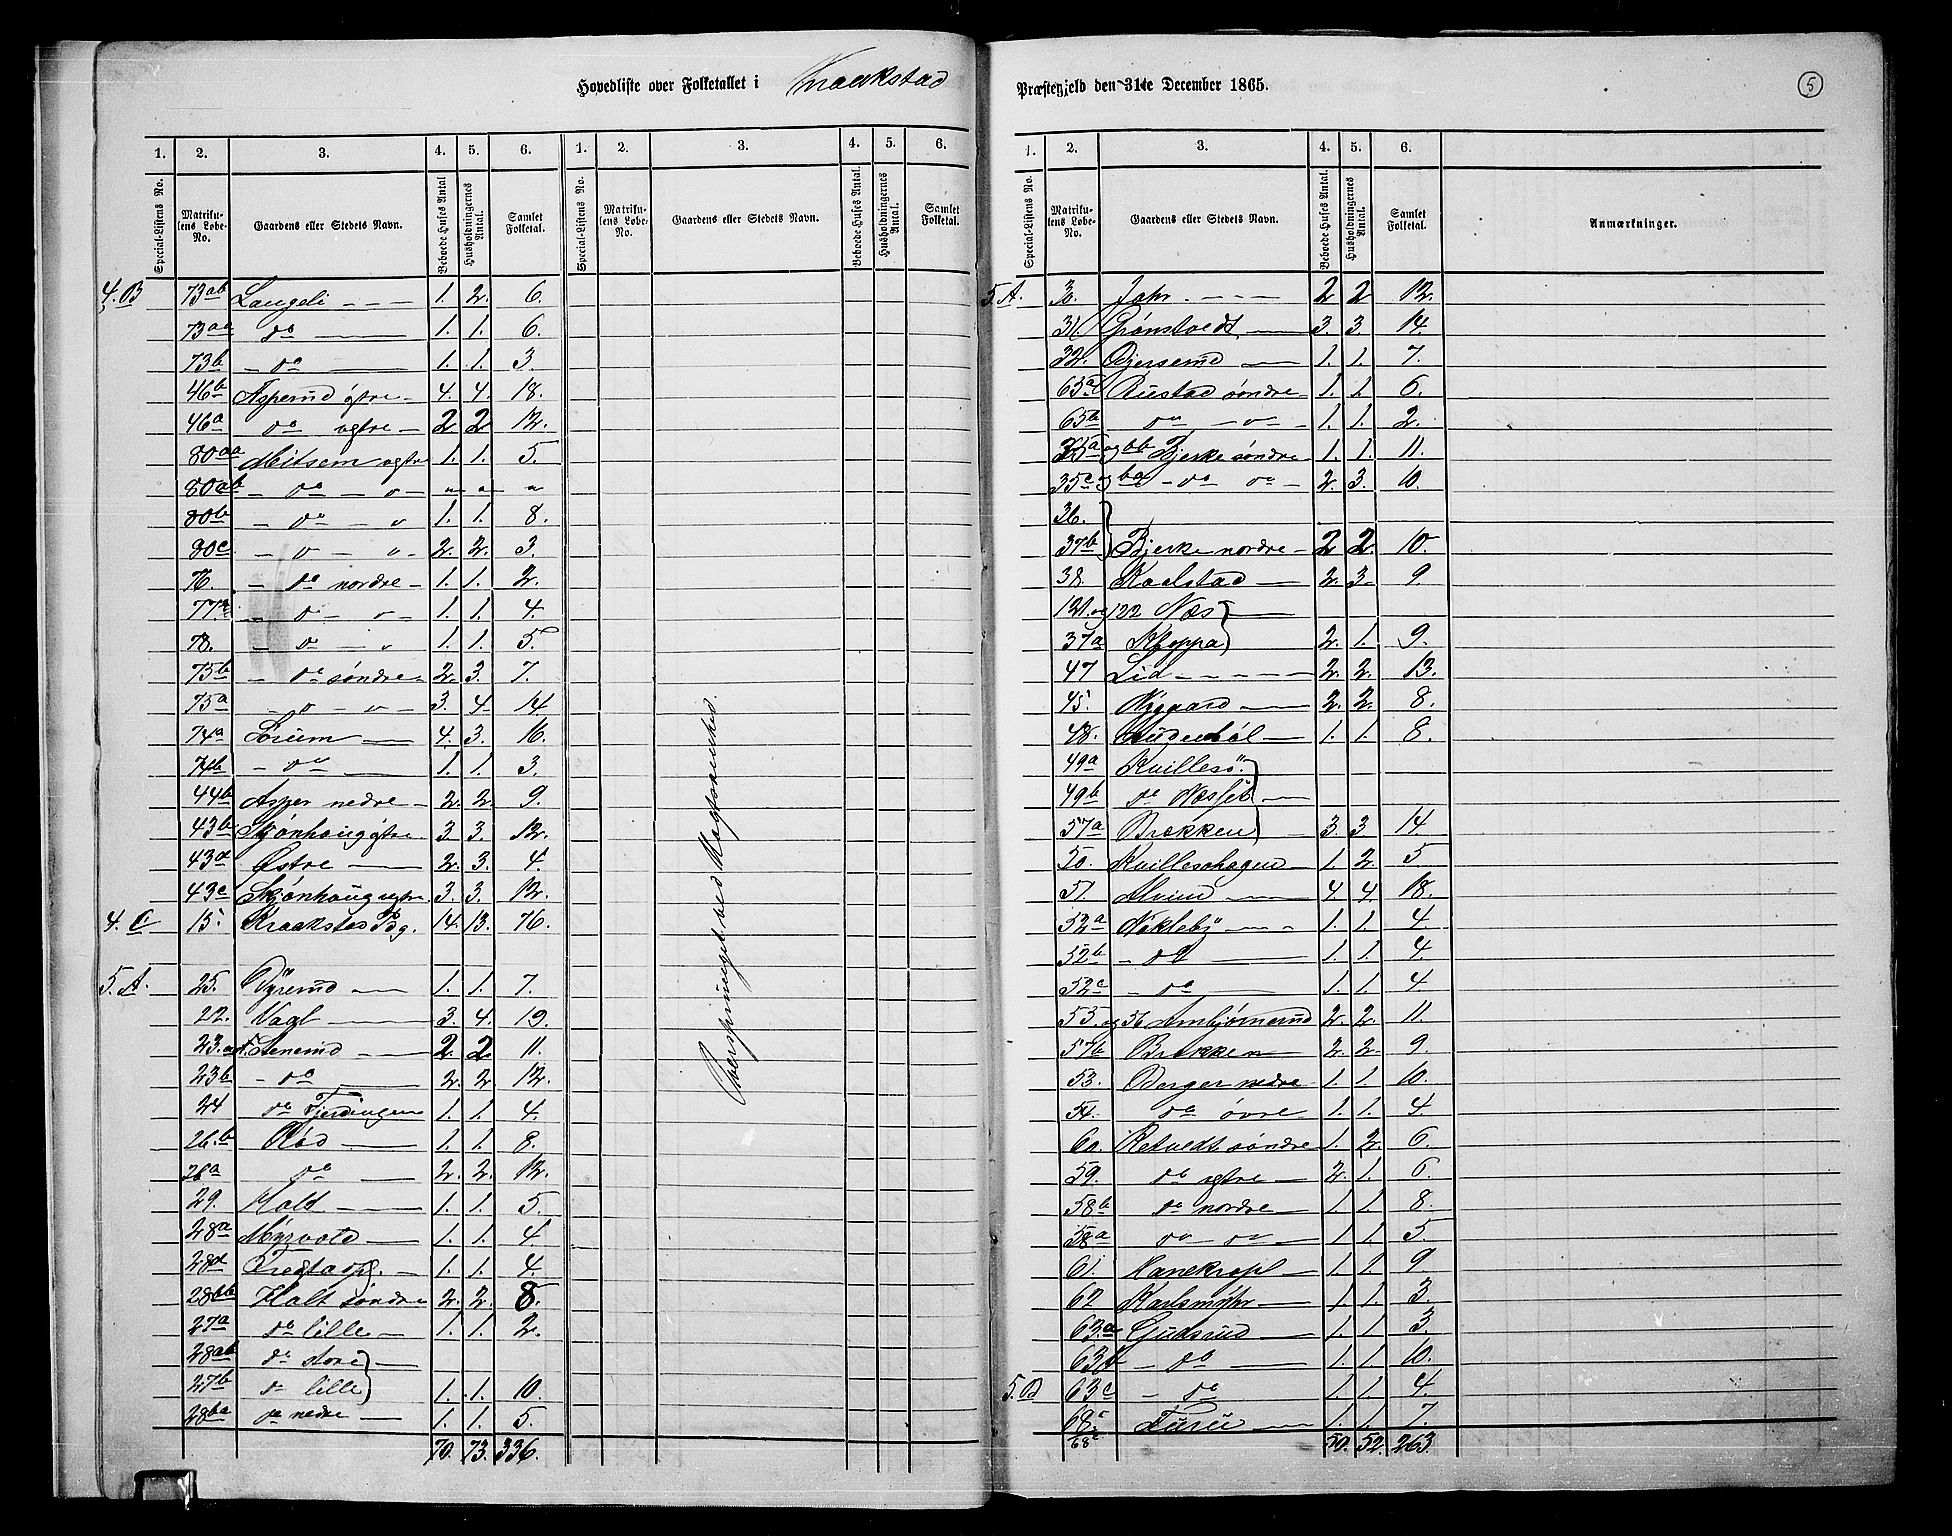 Hovedliste over Folketallet i Kraakstad Præstegjeld den 31te December 1865.
5
1. 2. 3. 4. 5. 6. 1. 2. 3. 4. 5. 6.
Special-Listens No. Matrikulens Løbe-No. Gaardens eller Stedets Navn. Beboede Huses Antal Husholdningernes Antal. Samlet Folketal. Special-Listens No. Matrikulens Løbe-No. Gaardens eller Stedets Navn. Beboede Huses Antal. Husholdningernes Antal. Samlet Folketal.
4.B 73ab Langeli 1. 2. 6.
73aa do 1. 1. 6.
73b do 1. 1. 3.
46b Asperud østre 4. 4. 18.
46a do vestre 2 2 12.
80aa Mitsem vestre 1. 1. 5.
80ab - do - o - " " "
80b - do - o 1. 1. 8.
80c - o - o - 2. 2. 3.
76. - do nordre 1. 1. 2.
77. - o - o - 1. 1. 4.
78. - o - o 1. 1. 5.
75b - do søndre 2. 3. 7.
75a - o - o - 3. 4. 14
74a Sørum 4. 3. 16.
74b - do 1. 1. 3.
44b Asper nedre 2. 2. 9.
43b Skjønhaug østre 3 3. 12.
43d Østre 2. 3. 4.
43c Skjønhaug vestre 3. 3. 12.
4.C 15. Kraakstad Pdg. 14. 13. 76.
5.A. 25. Dyrerud 1. 1. 7.
22. Vagl 3. 4. 19.
23. Stenerud 2. 2. 11.
23b - do 2. 2. 12.
24 do Fjerdingen 1. 1. 4.
26.b Rød 1. 1. 8.
26a do 2. 2. 12.
29. Holt 1. 1. 5.
28a Myrvold 1. 1. 4
28d 1. 1. 4.
28bb Holt søndre 2. 2. 8.
27a do lille 1. 1. 2.
28ab do store
27b do lille 1. 1. 10.
28ba do nedre 1. 1. 5.
70. 73. 336.
1. 2. 3. 4. 5. 6.
Special-Listens No. Matrikulens Løbe-No. Gaardens eller Stedets Navn. Beboede Huses Antal. Husholdningernes Antal. Samlet Folketal. Anmærkninger.
5.A. 30. Jahr 2 2 12.
31. Grønstvedt 3. 3. 14.
32. Gjerserud 1. 1. 7.
65a Rustad søndre 1. 1. 6.
65b do - o - 1. 1. 2.
35a og bb Bjerke søndre 1. 1. 11.
35c og ba - do do - 2. 3. 10.
36.
37b Bjerke nordre 2 2. 10.
38. Kaalstad 2. 3. 9
121. og 122 Næs
37a Kloppa 2. 1. 9.
47 Lid 2. 2. 13.
45. Nygaard 2. 2. 8.
48. 1. 1. 8.
49a Kvillesø
49b do Næsset
57a Brækken 3. 3 14.
50. Kvillesøhagen 1. 2. 5
51. 4. 4. 18.
52a Nøkleby 1. 1. 4.
52b - do 1. 1 4
52c - do 1. 1 4
55. og 56 Ambjørnrud 2. 2. 11.
57b Brækken 2. 2. 9.
53. Berger nedre 1. 1. 10.
54. do øvre 1. 1. 4
60. Retvedt søndre 1. 2. 6.
59. do vestre 2. 1. 6.
58b do nordre 1. 1 8.
58a do do 1. 1 5
61. Hanekropl 1. 1 9
62 Karlsmyhr 1. 1. 3.
63a Gudsrud 1. 1. 3.
63b - do 1. 1. 10.
5.B 63c - do 1. 1. 4.
68. Furu 1. 1. 7.
68c
50. 52. 263.